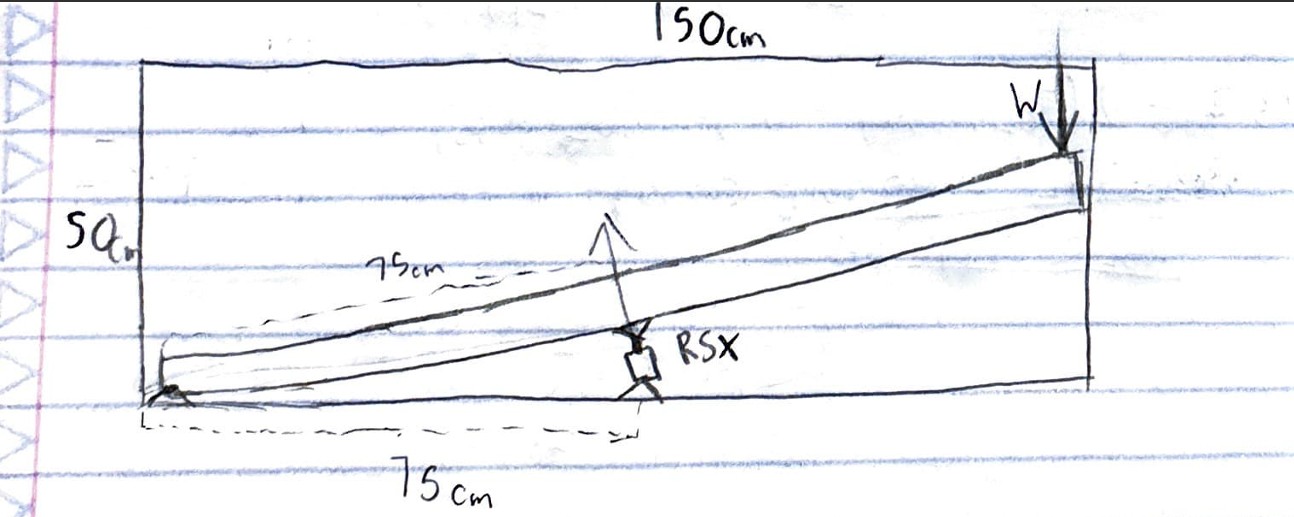 150cm
W
50cm
75cm
RSX
75cm